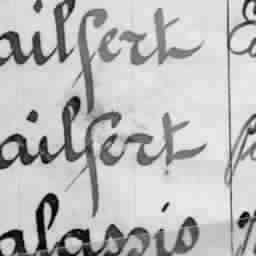 ailfert
ailfert
alassio